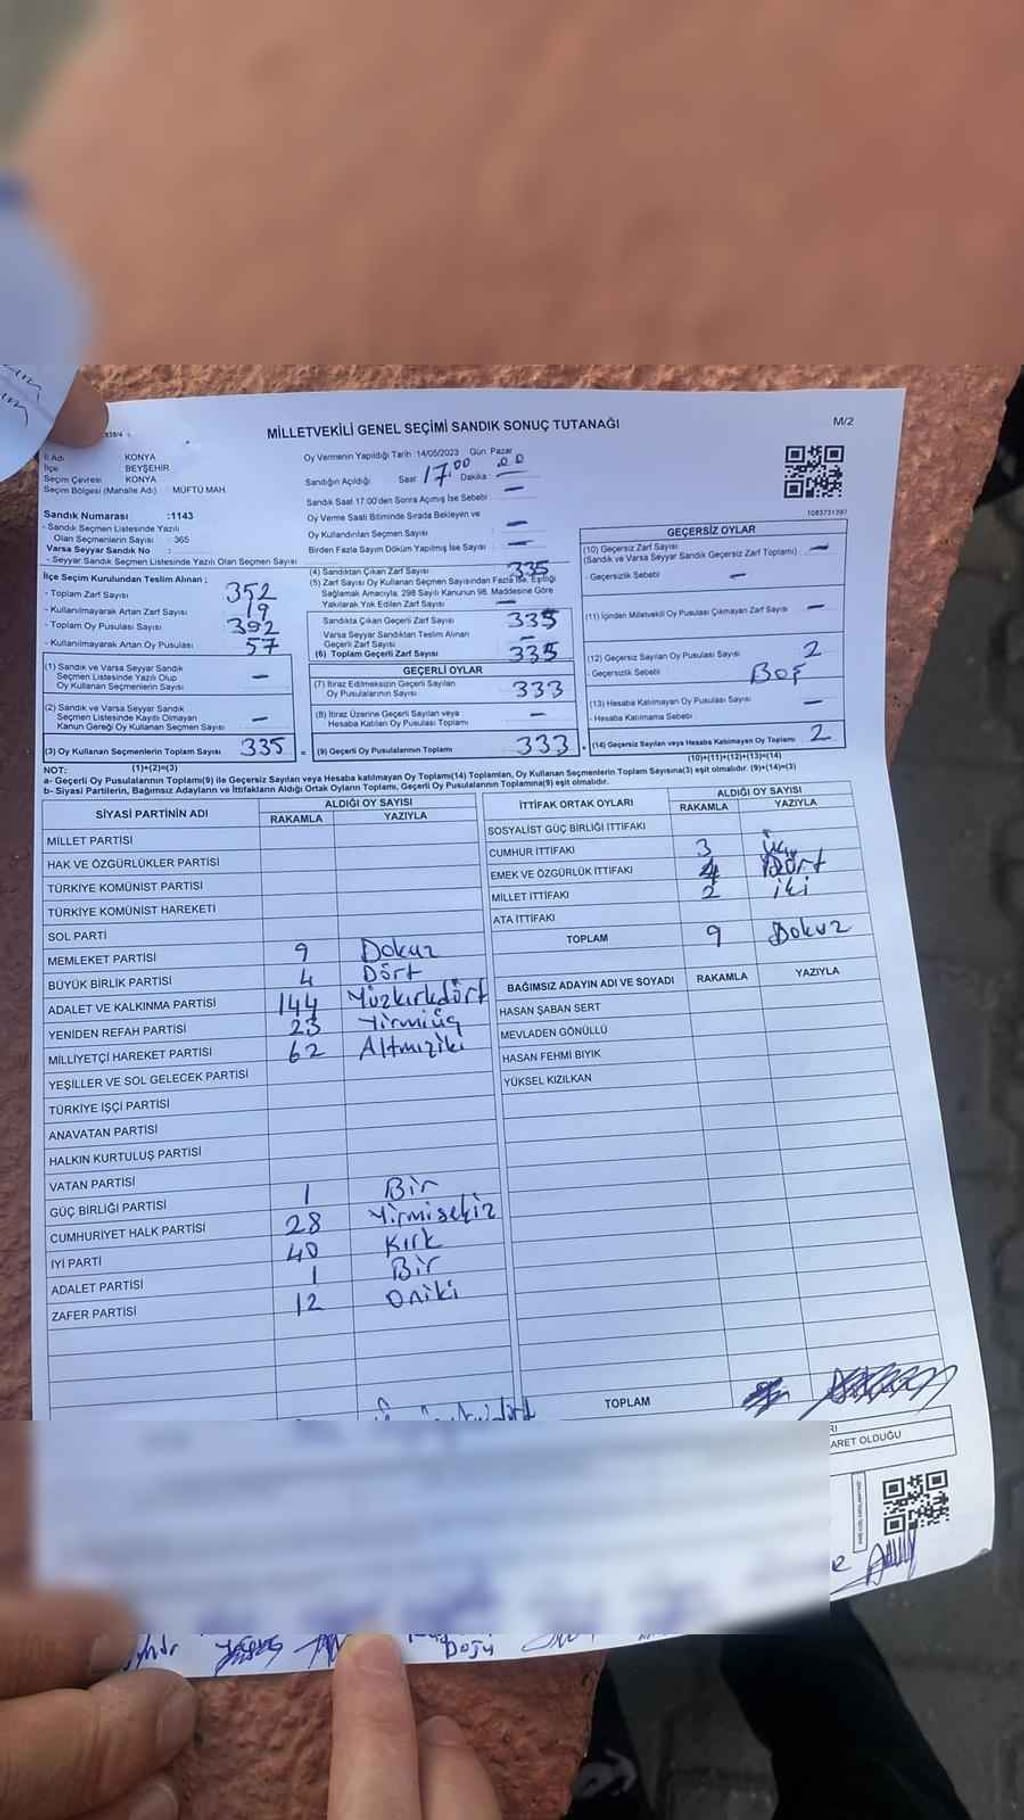 MİLLETVEKİLİ GENEL SEÇİMİ SANDIK SONUÇ TUTANAĞI
M/2
İl Adı : KONYA
İlçe : BEYŞEHİR
Seçim Çevresi : KONYA
Seçim Bölgesi (Mahalle Adı) : MÜFTÜ MAH.
Oy Vermenin Yapıldığı Tarih :14/05/2023 Gün: Pazar
Sandığın Açıldığı Saat: 17.00 Dakika: 00
Sandık Saat 17:00'den Sonra Açılmış İse Sebebi : —
Oy Verme Saati Bitiminde Sırada Bekleyen ve
Oy Kullandırılan Seçmen Sayısı —
Birden Fazla Sayım Döküm Yapılmış İse Sayısı —
Sandık Numarası :1143
- Sandık Seçmen Listesinde Yazılı
Olan Seçmenlerin Sayısı : 365
Varsa Seyyar Sandık No :
- Seyyar Sandık Seçmen Listesinde Yazılı Olan Seçmen Sayısı :
İlçe Seçim Kurulundan Teslim Alınan ;
- Toplam Zarf Sayısı 352
- Kullanılmayarak Artan Zarf Sayısı 19
- Toplam Oy Pusulası Sayısı 392
- Kullanılmayarak Artan Oy Pusulası 57
(1) Sandık ve Varsa Seyyar Sandık
Seçmen Listesinde Yazılı Olup
Oy Kullanan Seçmenlerin Sayısı —
(2) Sandık ve Varsa Seyyar Sandık
Seçmen Listesinde Kayıtlı Olmayan
Kanun Gereği Oy Kullanan Seçmen Sayısı —
(3) Oy Kullanan Seçmenlerin Toplam Sayısı 335
(1)+(2)=(3)
(4) Sandıktan Çıkan Zarf Sayısı 335
(5) Zarf Sayısı Oy Kullanan Seçmen Sayısından Fazla İse, Eşitliği
Sağlamak Amacıyla, 298 Sayılı Kanunun 98. Maddesine Göre
Yakılarak Yok Edilen Zarf Sayısı —
Sandıkta Çıkan Geçerli Zarf Sayısı 335
Varsa Seyyar Sandıktan Teslim Alınan
Geçerli Zarf Sayısı —
(6) Toplam Geçerli Zarf Sayısı 335
GEÇERLİ OYLAR
(7) İtiraz Edilmeksizin Geçerli Sayılan
Oy Pusulalarının Sayısı 333
(8) İtiraz Üzerine Geçerli Sayılan veya
Hesaba Katılan Oy Pusulası Toplamı —
(9) Geçerli Oy Pusulalarının Toplamı 333
GEÇERSİZ OYLAR
(10) Geçersiz Zarf Sayısı
(Sandık ve Varsa Seyyar Sandık Geçersiz Zarf Toplamı) —
- Geçersizlik Sebebi —
(11) İçinden Milletvekili Oy Pusulası Çıkmayan Zarf Sayısı —
(12) Geçersiz Sayılan Oy Pusulası Sayısı 2
- Geçersizlik Sebebi Boş
(13) Hesaba Katılmayan Oy Pusulası Sayısı —
- Hesaba Katılmama Sebebi
(14) Geçersiz Sayılan veya Hesaba Katılmayan Oy Toplamı 2
(10)+(11)+(12)+(13)=(14)
NOT:
a- Geçerli Oy Pusulalarının Toplamı(9) ile Geçersiz Sayılan veya Hesaba katılmayan Oy Toplamı(14) Toplamları, Oy Kullanan Seçmenlerin Toplam Sayısına(3) eşit olmalıdır. (9)+(14)=(3)
b- Siyasi Partilerin, Bağımsız Adayların ve İttifakların Aldığı Ortak Oyların Toplamı, Geçerli Oy Pusulalarının Toplamına(9) eşit olmalıdır.
SİYASİ PARTİNİN ADI ALDIĞI OY SAYISI
RAKAMLA YAZIYLA
MİLLET PARTİSİ
HAK VE ÖZGÜRLÜKLER PARTİSİ
TÜRKİYE KOMÜNİST PARTİSİ
TÜRKİYE KOMÜNİST HAREKETİ
SOL PARTİ
MEMLEKET PARTİSİ 9 Dokuz
BÜYÜK BİRLİK PARTİSİ 4 Dört
ADALET VE KALKINMA PARTİSİ 144 Yüzkırkdört
YENİDEN REFAH PARTİSİ 23 Yirmiüç
MİLLİYETÇİ HAREKET PARTİSİ 62 Altmışiki
YEŞİLLER VE SOL GELECEK PARTİSİ
TÜRKİYE İŞÇİ PARTİSİ
ANAVATAN PARTİSİ
HALKIN KURTULUŞ PARTİSİ
VATAN PARTİSİ
GÜÇ BİRLİĞİ PARTİSİ 1 Bir
CUMHURİYET HALK PARTİSİ 28 Yirmisekiz
İYİ PARTİ 40 Kırk
ADALET PARTİSİ 1 Bir
ZAFER PARTİSİ 12 Oniki
İTTİFAK ORTAK OYLARI ALDIĞI OY SAYISI
RAKAMLA YAZIYLA
SOSYALİST GÜÇ BİRLİĞİ İTTİFAKI
CUMHUR İTTİFAKI 3 Üç
EMEK VE ÖZGÜRLÜK İTTİFAKI 4 Dört
MİLLET İTTİFAKI 2 iki
ATA İTTİFAKI
TOPLAM 9 Dokuz
BAĞIMSIZ ADAYIN ADI VE SOYADI RAKAMLA YAZIYLA
HASAN ŞABAN SERT
MEVLADEN GÖNÜLLÜ
HASAN FEHMİ BIYIK
YÜKSEL KIZILKAN
TOPLAM
ARET OLDUĞU